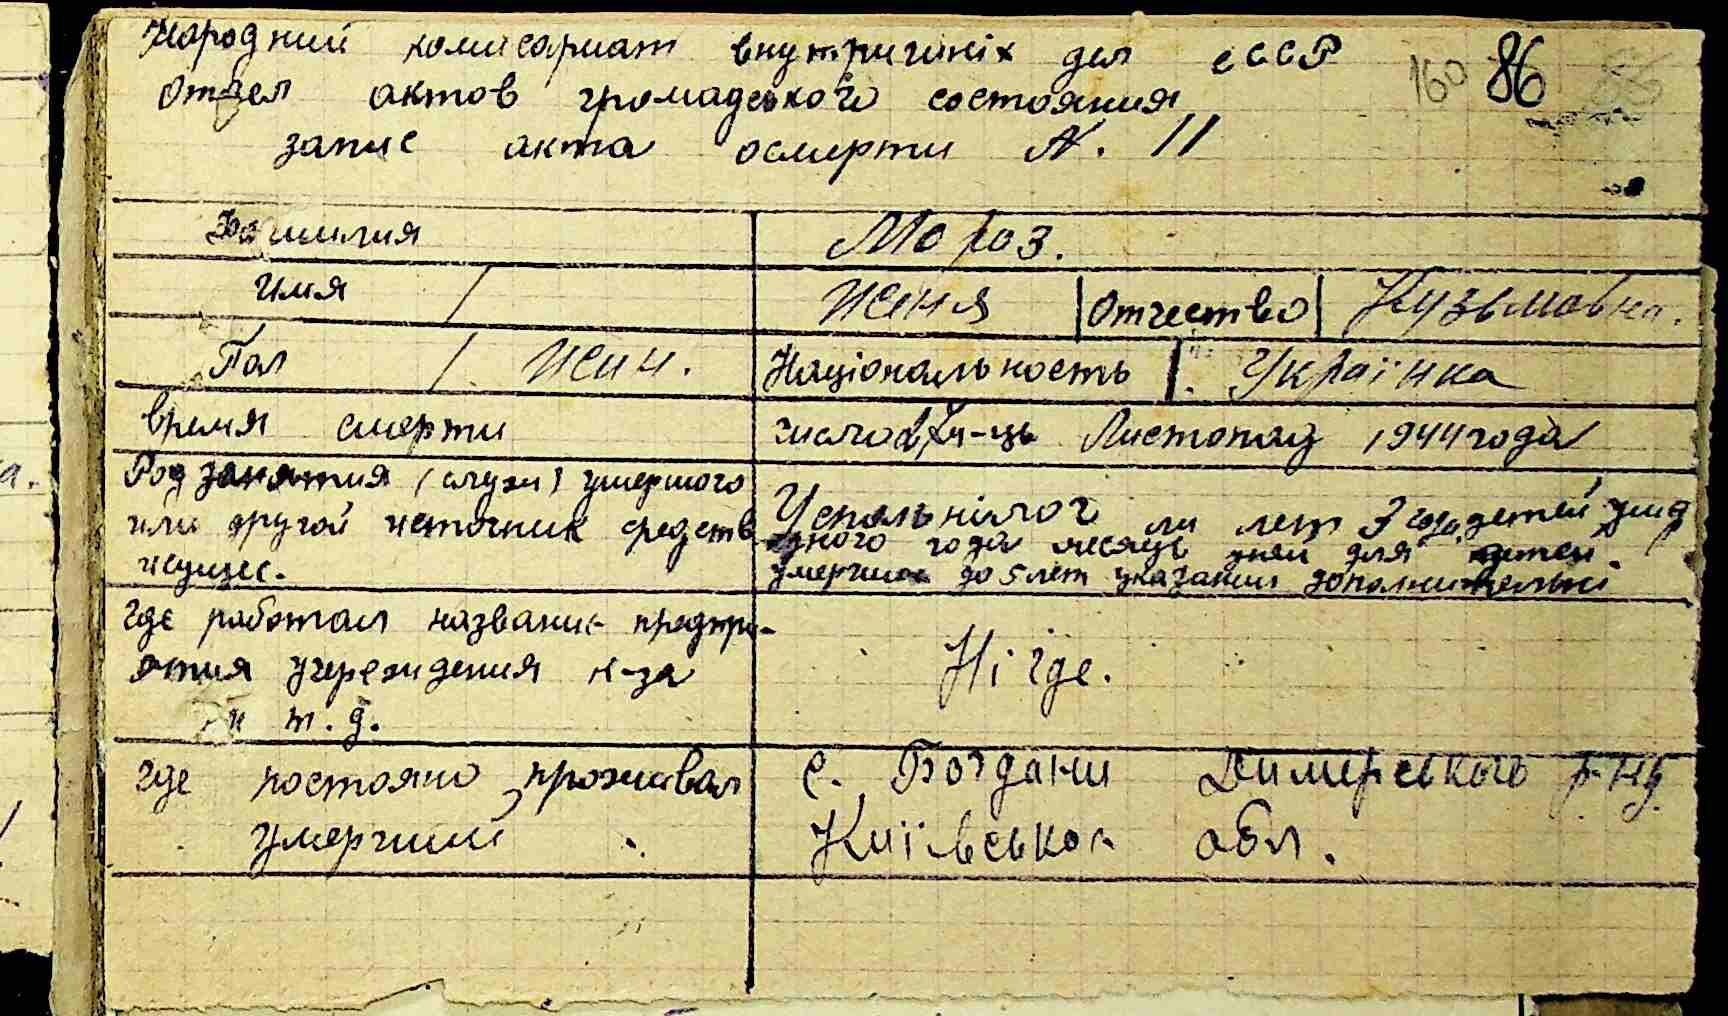 Народний комисариат внутриших дел СССР
160 86
Отдел актов громадського состояния
запис акта осмерти N. 11
Фамилия Мороз.
Имя Женя Отчество Кузьмовна.
Пол Жін. Національность Українка
время смерти число м-ць Листопад 1944 года
Род занятия (служ) умершого
или другой источник средств
исущес.
Успольнілог ли лет 3 года детей умер
одного года месяць дней для детей
умерших до 5 лет указании дополнительні
Где работал название предпри-
ятия учереждения к-за
и т. д.
Ні где.
где постояно проживал
умерший
с. Богдани Димерського р-ну
Київськоі обл.